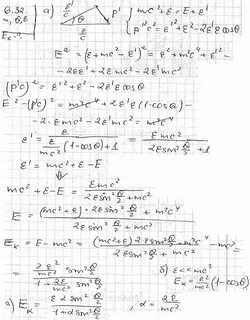 6.32.
m, θ, ε
E_к - ?
а) ε'/c
p'
θ
ε/c
{ mc² + ε = E + ε'
p'²c² = ε² + ε'² - 2εε' cosθ
E² = (ε + mc² - ε')² = ε² + m²c⁴ + ε'² -
- 2εε' + 2εmc² - 2ε'mc²
(p'c)² = ε'² + ε² - 2ε'ε cosθ
E² - (p'c)² = m²c⁴ + 2ε'ε(1 - cosθ)
- 2εmc² - 2ε'mc² = m²c⁴
ε' = ε / (ε/mc² (1 - cosθ) + 1) = εmc² / (2ε sin² θ/2 + 1)
ε' = mc² + ε - E
⇓
mc² + ε - E = εmc² / (2ε sin² θ/2 + mc²)
E = ((mc² + ε) · 2ε sin² θ/2 + m²c⁴) / (2ε sin² θ/2 + mc²)
E_к = E - mc² = ((mc² + ε) 2ε sin² θ/2 + m²c⁴) / (2ε sin² θ/2 + mc²) - mc² =
= (2ε²/mc² sin² θ/2) / (1 + 2ε/mc² sin² θ/2)
б) ε << mc²
E_к = ε²/mc² (1 - cosθ)
E_к = (ε α sin² θ/2) / (1 + α sin² θ/2) , α = 2ε/mc²